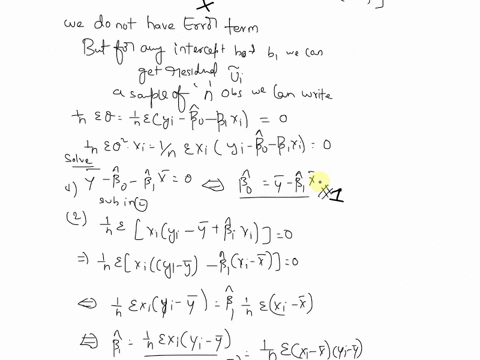 we do not have Error term
But for any intercept b₀ & b₁ we can
get residual ũᵢ
a sample of 'n' obs we can write
1/n Σθ̂ = 1/n Σ(yᵢ - β̂₀ - β̂₁xᵢ) = 0
1/n Σθ̂ xᵢ = 1/n Σxᵢ(yᵢ - β̂₀ - β̂₁xᵢ) = 0
Solve
1) ȳ - β̂₀ - β̂₁x̄ = 0 ⇔ β̂₀ = ȳ - β̂₁x̄ ※1
sub in
(2) 1/n Σ[xᵢ(yᵢ - ȳ + β̂₁xᵢ)] = 0
⇒ 1/n Σ[xᵢ((yᵢ-ȳ) - β̂₁(xᵢ-x̄)] = 0
⇔ 1/n Σxᵢ(yᵢ-ȳ) = β̂₁ 1/n Σ(xᵢ-x̄)
⇔ β̂₁ = 1/n Σxᵢ(yᵢ-ȳ) = 1/n Σ(xᵢ-x̄)(yᵢ-ȳ)